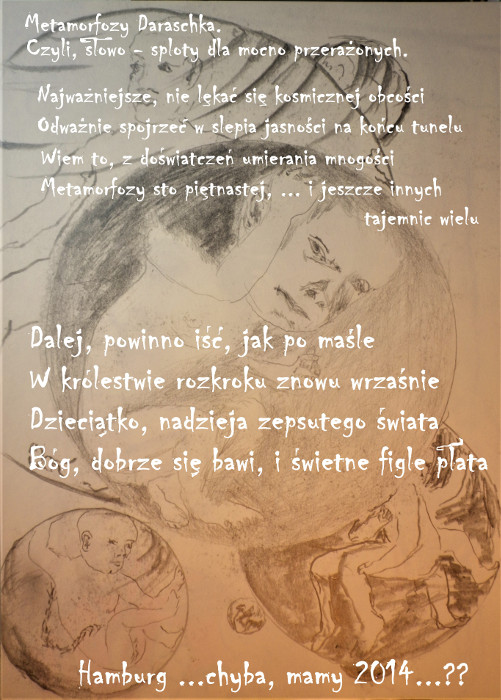 Metamorfozy Daraschka.
Czyli, słowo - sploty dla mocno przerażonych.
Najważniejsze, nie lękać się kosmicznej obcości
Odważnie spojrzeć w slepia jasności na końcu tunelu
Wiem to, z doświatczeń umierania mnogości
Metamorfozy sto piętnastej, ... i jeszcze innych
tajemnic wielu
Dalej, powinno iść, jak po maśle
W królestwie rozkroku znowu wrzaśnie
Dzieciątko, nadzieja zepsutego świata
Bóg, dobrze się bawi, i świetne figle płata
Hamburg ...chyba, mamy 2014...??